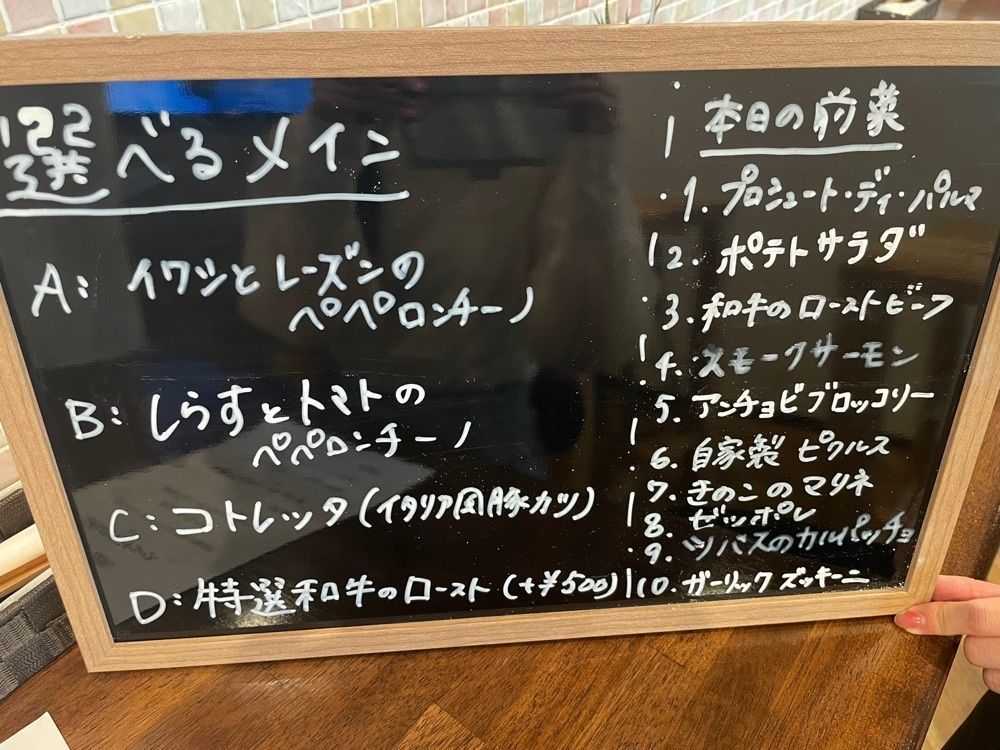 選べるメイン
A: イワシとレーズンの
ペペロンチーノ
B: しらすとトマトの
ペペロンチーノ
C: コトレッタ(イタリア風豚カツ)
D: 特選和牛のロースト(+¥500)
本日の前菜
1. プロシュート・ディ・パルマ
2. ポテトサラダ
3. 和牛のローストビーフ
4. スモークサーモン
5. アンチョビブロッコリー
6. 自家製 ピクルス
7. きのこのマリネ
8. ゼッポレ
9. ツバスのカルパッチョ
10. ガーリックズッキーニ